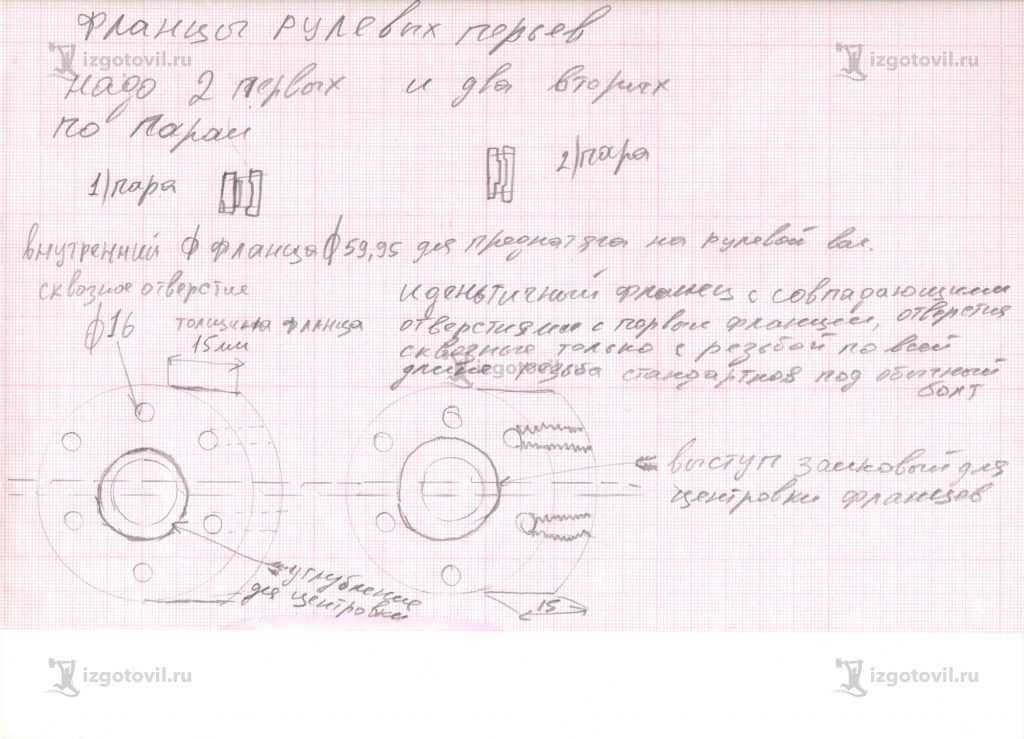 izgotovil.ru
izgotovil.ru
Фланцы рулевых перьев
надо 2 первых и два вторых
по парам
1) пара
2) пара
внутренний ф фланца ф 59,95 для преднатяга на рулевой вал.
сквозное отверстие
ф16
толщина фланца
15мм
идентичный фланец с совпадающими
отверстиями с первым фланцем, отверстия
сквозные только с резьбой по всей
длине резьба стандартная под обычный
болт
izgotovil.ru
выступ замковый для
центровки фланцев
углубление
для центровки
15
izgotovil.ru
izgotovil.ru